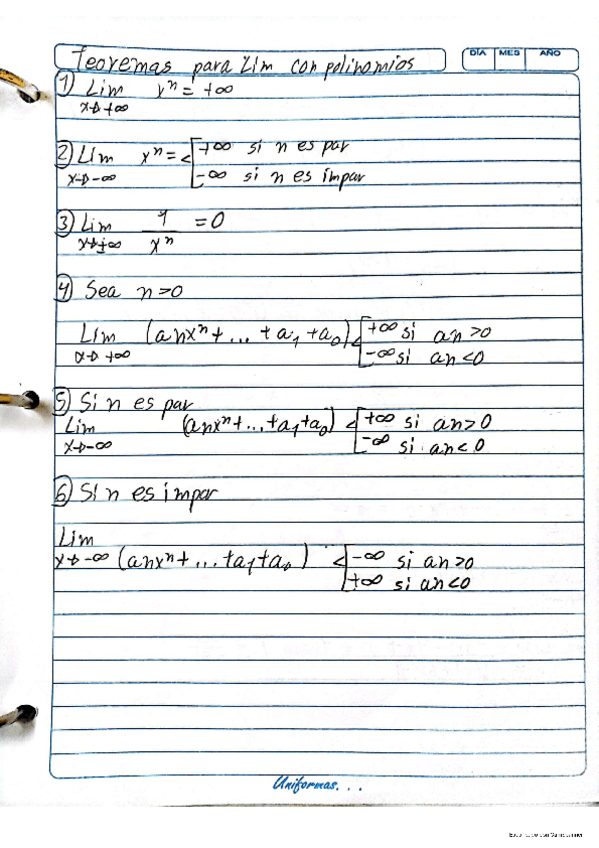 Teoremas para Lim con polinomios
DÍA MES AÑO
1) Lim xⁿ = +∞
x→+∞
2) Lim xⁿ = < +∞ si n es par
x→-∞ -∞ si n es impar
3) Lim 1/xⁿ = 0
x→±∞
4) Sea n>0
Lim (anxⁿ+...+a₁+a₀) < +∞ si an>0
x→+∞ -∞ si an<0
5) Si n es par
Lim (anxⁿ+...+a₁+a₀) < +∞ si an>0
x→-∞ -∞ si an<0
6) Si n es impar
Lim
x→-∞ (anxⁿ+...+a₁+a₀) < -∞ si an>0
+∞ si an<0
Uniformas...